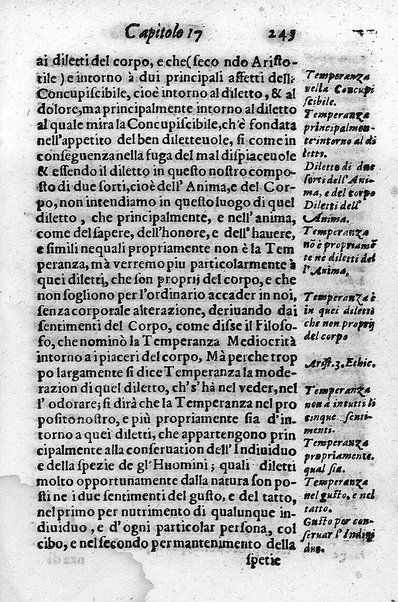 Capitolo 17 243
ai diletti del corpo, e che (seco ndo Aristo-
tile) e intorno à dui principali affetti dell
Concupiscibile, cioè intorno al diletto, & al
dolore, ma principalmente intorno al diletto
al quale mira la Concupiscibile, ch'è fondata
nell'appetito del ben dilettevole, si come in
conseguenza nella fuga del mal dispiaceuole
& essendo il diletto in questo nostro compo-
sto di due sorti, cioè dell' Anima, e del Cor-
po, non intendiamo in questo luogo di quel
diletto, che principalmente, e nell'anima,
come del sapere, dell'honore, e dell'hauere,
e simili nequali propriamente non è la Tem
peranza, mà verremo piu particolarmente à
quei diletti, che son proprij del corpo, e che
non sogliono per l'ordinario accader in noi,
senza corporale alterazione, deriuando dai
sentimenti del Corpo, come disse il Filoso-
fo, che nominò la Temperanza Mediocrità
intorno a i piaceri del corpo, Mà perche trop
po largamente si dice Temperanza la mode-
razion di quel diletto, ch's'hà nel veder, nel
l'odorare; si dirà che la Temperanza nel pro
posito nostro, e più propriamente sia d'in-
torno a quei diletti, che appartengono prin
cipalmente alla conseruation dell'Indiuiduo
e della spezie de gl'Huomini; quali diletti
molto opportunamente dalla natura son po-
sti ne i due sentimenti del gusto, e del tatto,
nel primo per nutrimento di qualunque in-
diuiduo, e d'ogni particolar persona, col
cibo, e nel secondo per mantenimento della
spetie
Temperanza
nella Concupi
scibile.
Temperanza
principalmen-
te intorno al di
letto.
Diletto di due
sorti dell'Ani-
ma, e del corpo
Diletti dell'
Anima.
Temperanza
nō è propriamē
te ne diletti del
l'Anima.
Temperanza è
in quei diletti
che non proprij
del corpo
Arist. 3. Ethic.
Temperanza
non à in tutti li
cinque senti-
menti.
Temperanza
propriamente.
qual sia.
Temperanza
nel gusto, e nel
tatto.
Gusto per con-
seruar l'Indiui
duo.